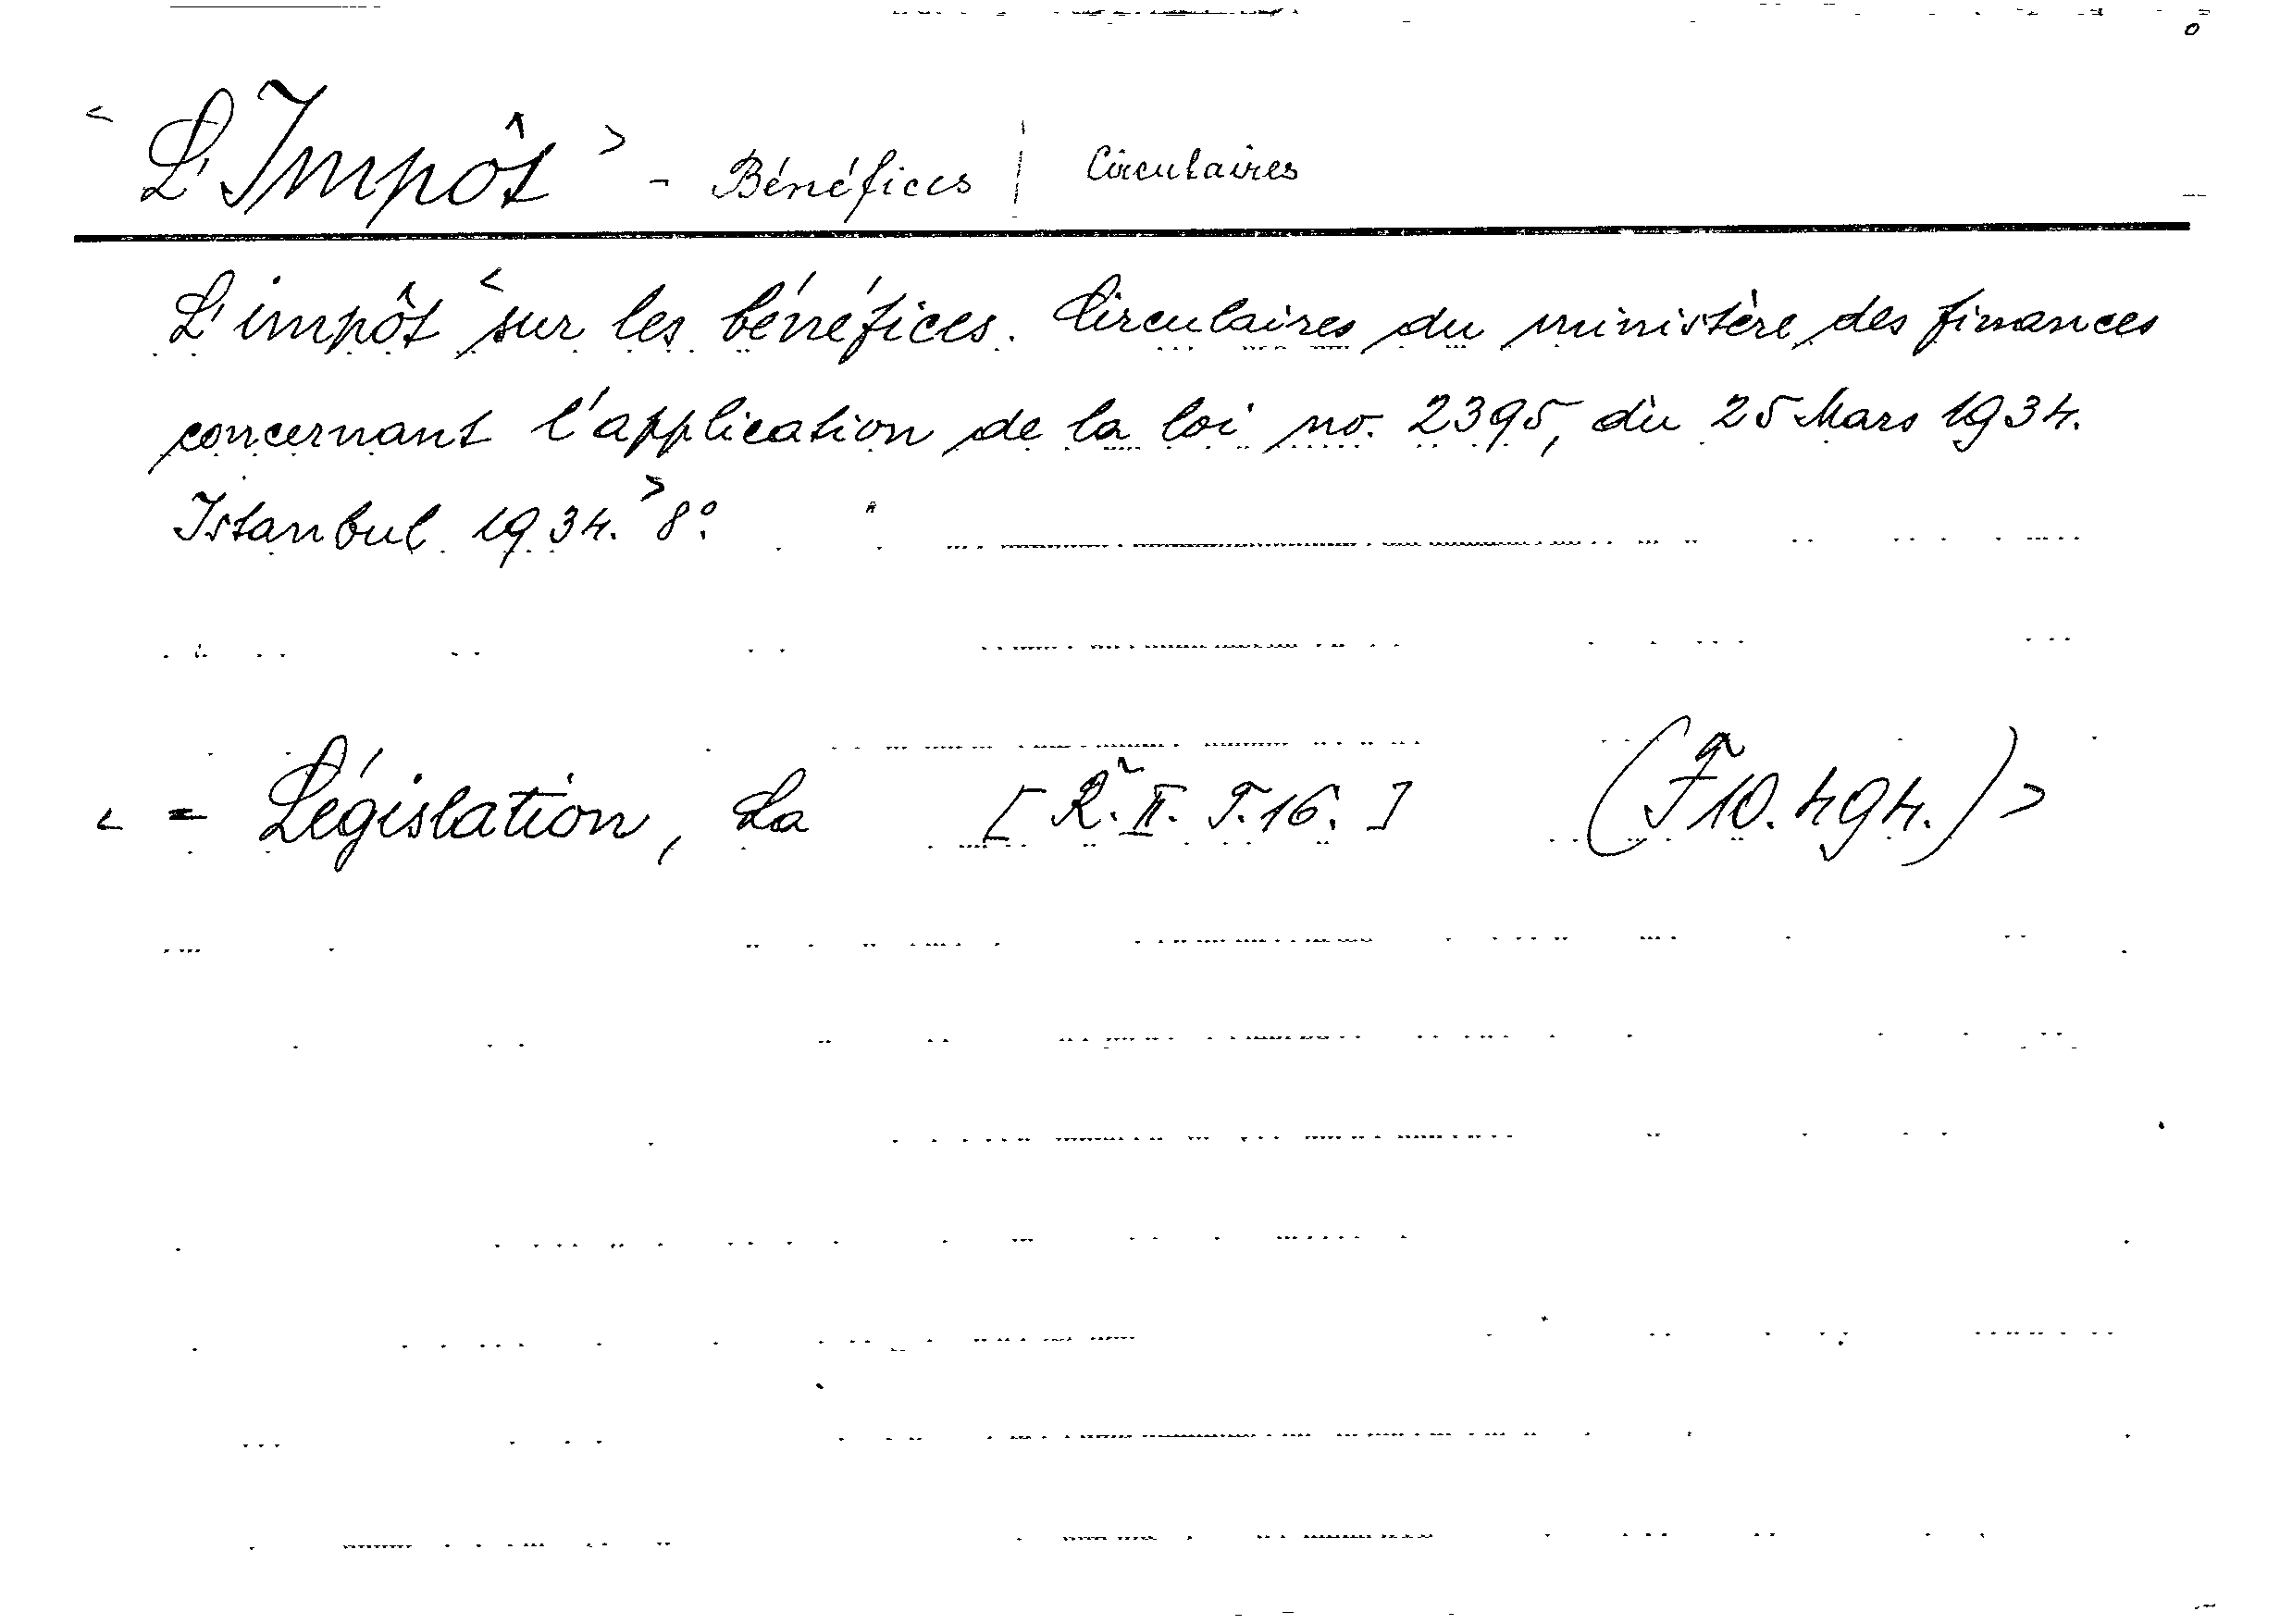 < L'Impôt > - Bénéfices | Circulaires
L'impôt < sur les bénéfices. Circulaires du ministère des finances
concernant l'application de la loi no. 2395, du 25 Mars 1934.
Istanbul 1934. > 8°.
< = Législation, La [R. II. T. 16.] (F 10. 494.) >